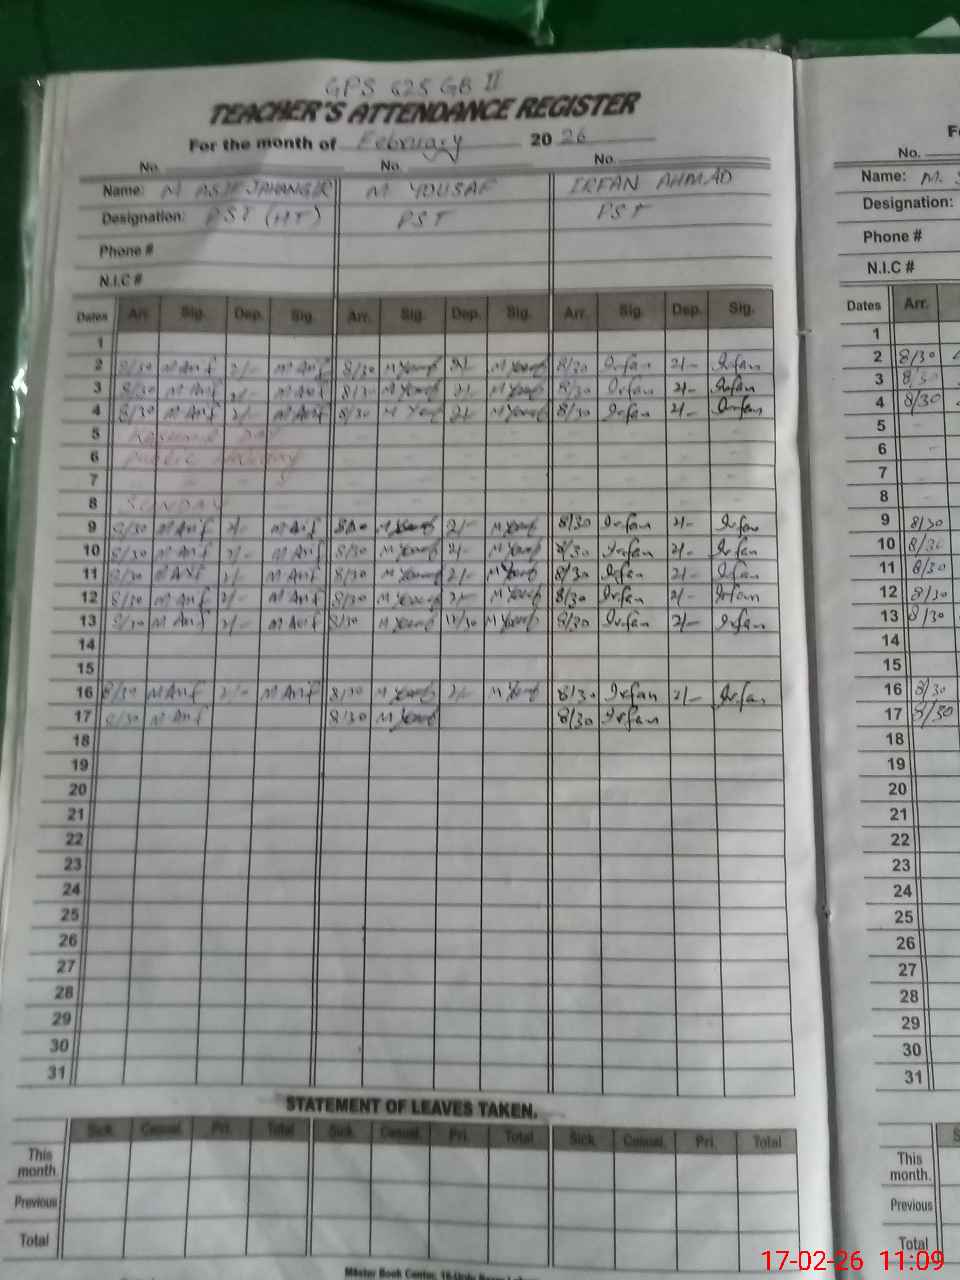 GPS 625 GB II
TEACHER'S ATTENDANCE REGISTER
For the month of February 2026
No. No. No.
Name: M ASIF JAHANGIR M YOUSAF IRFAN AHMAD
Designation: PST (HT) PST PST
Phone #
N.I.C #
Dates Arr. Sig. Dep. Sig. Arr. Sig. Dep. Sig. Arr. Sig. Dep. Sig.
1
2 8/30 M Asif 2/- M Asif 8/30 M Yousf 2/- M Yousf 8/30 Irfan 2/- Irfan
3 8/30 M Asif 2/- M Asif 8/30 M Yousf 2/- M Yousf 8/30 Irfan 2/- Irfan
4 8/30 M Asif 2/- M Asif 8/30 M Yousf 2/- M Yousf 8/30 Irfan 2/- Irfan
5 Kashmir Day
6 Public Holiday
7
8 SUNDAY
9 8/30 M Asif 2/- M Asif 8/30 M Yousf 2/- M Yousf 8/30 Irfan 2/- Irfan
10 8/30 M Asif 2/- M Asif 8/30 M Yousf 2/- M Yousf 8/30 Irfan 2/- Irfan
11 8/30 M Asif 2/- M Asif 8/30 M Yousf 2/- M Yousf 8/30 Irfan 2/- Irfan
12 8/30 M Asif 2/- M Asif 8/30 M Yousf 2/- M Yousf 8/30 Irfan 2/- Irfan
13 8/30 M Asif 2/- M Asif 8/30 M Yousf 12/30 M Yousf 8/30 Irfan 2/- Irfan
14
15
16 8/30 M Asif 2/- M Asif 8/30 M Yousf 2/- M Yousf 8/30 Irfan 2/- Irfan
17 8/30 M Asif 8/30 M Yousf 8/30 Irfan
18
19
20
21
22
23
24
25
26
27
28
29
30
31
STATEMENT OF LEAVES TAKEN.
Sick. Casual. Pri. Total Sick. Casual. Pri. Total Sick. Casual. Pri. Total
This month.
Previous
Total
Master Book Center,
No.
Name: M.
Designation:
Phone #
N.I.C #
Dates Arr.
1
2 8/30
3 8/30
4 8/30
5
6
7
8
9 8/30
10 8/30
11 8/30
12 8/30
13 8/30
14
15
16 8/30
17 8/30
18
19
20
21
22
23
24
25
26
27
28
29
30
31
This month.
Previous
Total
17-02-26 11:09